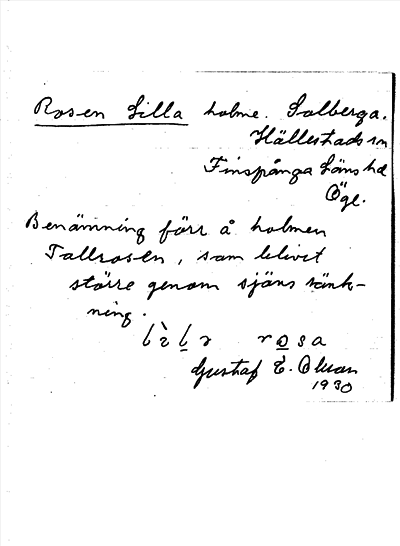 Rosen Lilla holme. Solberga.
Hällestads sn
Finspånga läns hd
Ögl.
Benämning förr å holmen
Tallrosen, som blivit
större genom sjöns sänk-
ning.
rosa
Gustaf E. Olsson
1930